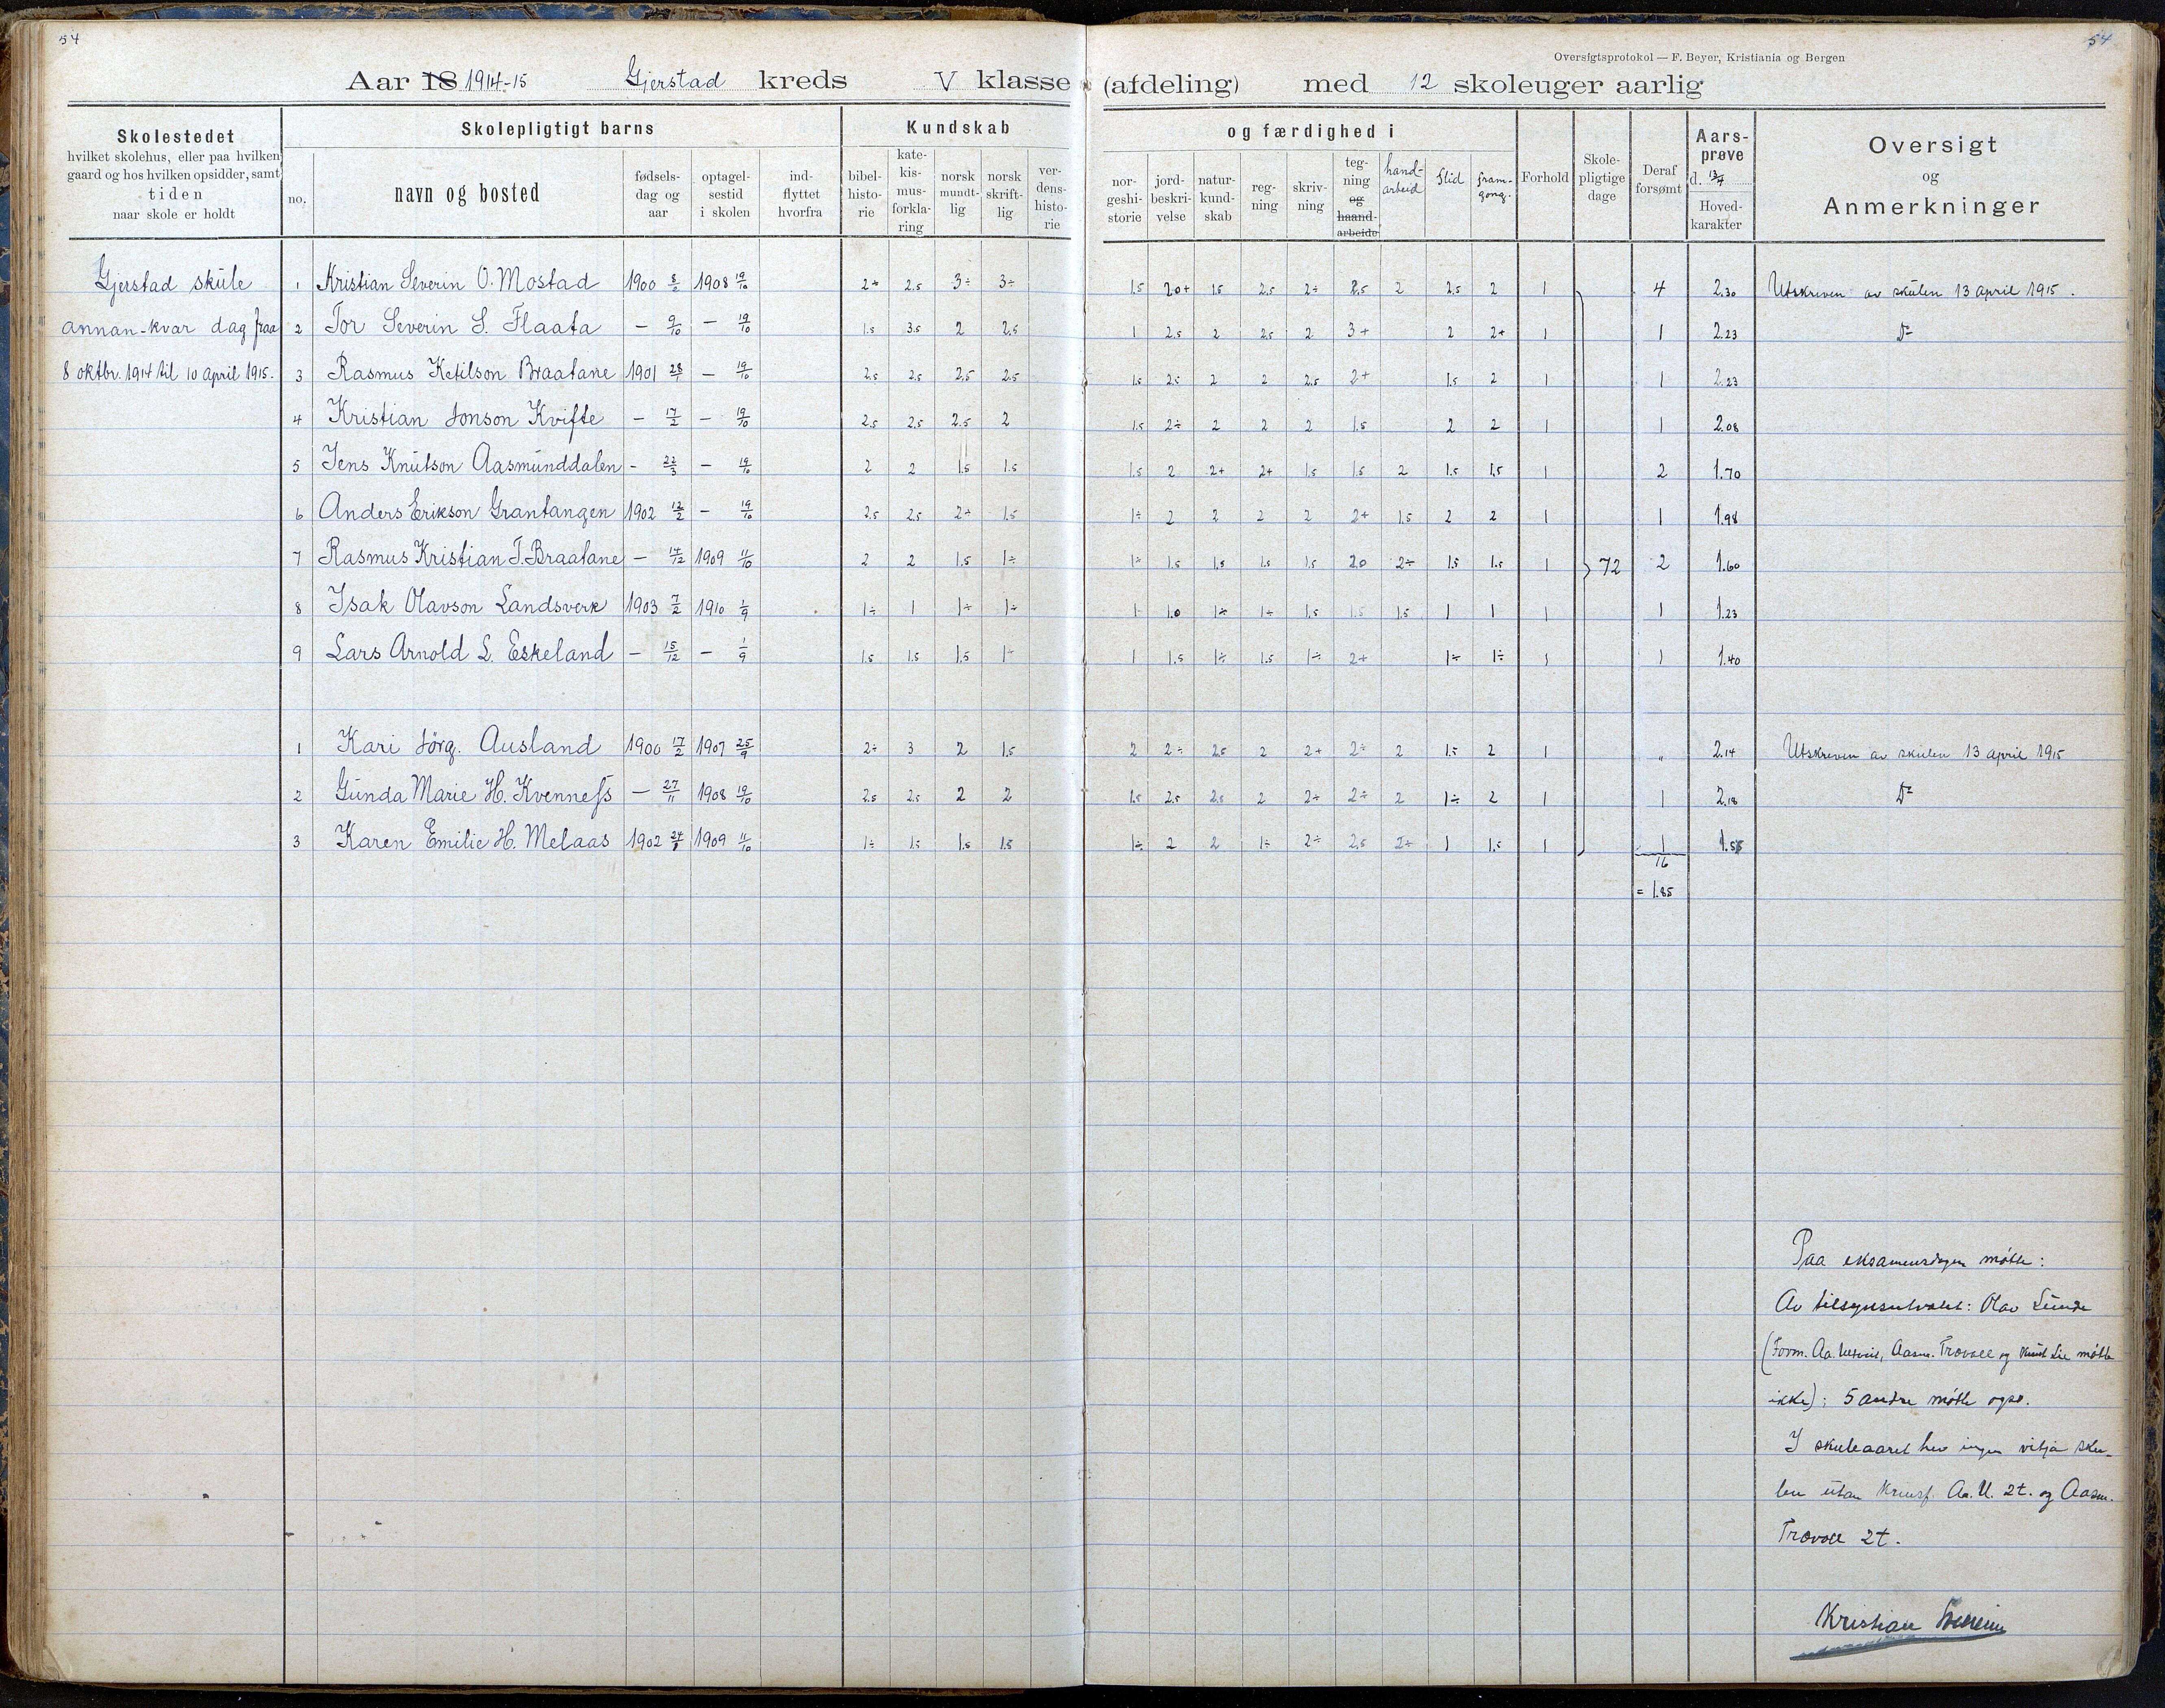 54
54
Oversigtsprotokol — F. Beyer, Kristiania og Bergen
Aar 18 1914-15 Gjerstad kreds V klasse (afdeling) med 12 skoleuger aarlig
Skolestedet
hvilket skolehus, eller paa hvilken
gaard og hos hvilken opsidder, samt
tiden
naar skole er holdt
Skolepligtigt barns
no.
navn og bosted
fødsels-
dag og
aar
optagel-
sestid
i skolen
ind-
flyttet
hvorfra
Kundskab
bibel-
histo-
rie
kate-
kis-
mus-
forkla-
ring
norsk
mundt-
lig
norsk
skrift-
lig
ver-
dens-
histo-
rie
og færdighed i
nor-
geshi-
storie
jord-
beskri-
velse
natur-
kund-
skab
reg-
ning
skriv-
ning
teg-
ning
og
haand-
arbeide
hand-
arbeid
flid
fram-
gong.
Forhold
Skole-
pligtige
dage
Deraf
forsømt
Aars-
prøve
d. 13/4
Hoved-
karakter
Oversigt
og
Anmerkninger
Gjerstad skule
annan-kvar dag fraa
8 oktbr. 1914 til 10 april 1915.
1 Kristian Severin O. Mostad 1900 1908 19/10 2+ 2.5 3÷ 3÷ 1.5 2.0+ 1.5 2.5 2÷ 2.5 2 2.5 2 1 4 2.30 Utskreven av skulen 13 april 1915.
2 Tor Severin S. Flaata — 9/10 — 19/10 1.5 3.5 2 2.5 1 2.5 2 2.5 2 3+ 2 2+ 1 1 2.23 Do
3 Rasmus Ketilson Braatane 1901 28/1 — 19/10 2.5 2.5 2.5 2.5 1.5 2.5 2 2 2.5 2+ 1.5 2 1 1 2.23
4 Kristian Jonson Kvifte — 17/2 — 19/10 2.5 2.5 2.5 2 1.5 2÷ 2 2 2 1.5 2 2 1 1 2.08
5 Jens Knutson Aasmunddalen — 22/3 — 19/10 2 2 1.5 1.5 1.5 2 2+ 2+ 1.5 1.5 2 1.5 1.5 1 2 1.70
6 Anders Erikson Grantangen 1902 12/2 — 19/10 2.5 2.5 2+ 1.5 1÷ 2 2 2 2 2+ 1.5 2 2 1 1 1.98
7 Rasmus Kristian T. Braatane — 14/12 1909 11/10 2 2 1.5 1÷ 1÷ 1.5 1.5 1.5 1.5 2.0 2÷ 1.5 1.5 1 72 2 1.60
8 Isak Olavson Landsverk 1903 7/2 1910 1/9 1÷ 1 1÷ 1÷ 1 1.0 1÷ 1÷ 1.5 1.5 1.5 1 1 1 1 1.23
9 Lars Arnold L. Eskeland — 15/12 — 1/9 1.5 1.5 1.5 1÷ 1 1.5 1÷ 1.5 1÷ 2+ 1÷ 1÷ 1 1 1.40
1 Kari Jörg. Ausland 1900 17/2 1907 25/9 2÷ 3 2 1.5 2 2÷ 2.5 2 2+ 2÷ 2 1.5 2 1 „ 2.14 Utskreven av skulen 13 april 1915
2 Gunda Marie H. Kvenness — 27/11 1908 19/10 2.5 2.5 2 2 1.5 2.5 2.5 2 2÷ 2÷ 2 1÷ 2 1 1 2.18 Do
3 Karen Emilie H. Melaas 1902 24/8 1909 11/10 1÷ 1.5 1.5 1.5 1÷ 2 2 1÷ 2÷ 2.5 2÷ 1 1.5 1 1
16
= 1.85
Paa eksamensdagen møtte:
Av tilsynsutvalet: Olav Lunde
(Form. Aa. Aasm. Trovoll og Knut Lie møtte
ikke); 5 andre møtte ogso.
I skuleaaret hev ingen vitja sku-
len utan Aa. U. 2t. og Aasm.
Trovoll 2t.
Kristian